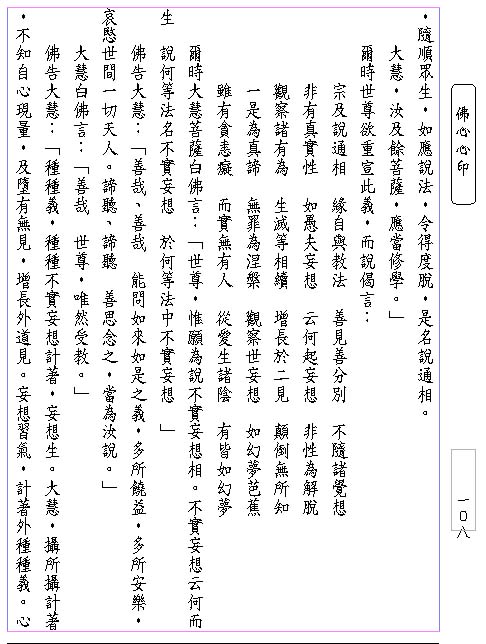 佛心心印
一０八
・隨順眾生・如應說法・令得度脫・是名說通相。
大慧・汝及餘菩薩・應當修學。」
爾時世尊欲重宣此義・而說偈言：
宗及說通相　緣自與教法　善見善分別　不隨諸覺想
非有真實性　如愚夫妄想　云何起妄想　非性為解脫
觀察諸有為　生滅等相續　增長於二見　顛倒無所知
一是為真諦　無罪為涅槃　觀察世妄想　如幻夢芭蕉
雖有貪恚癡　而實無有人　從愛生諸陰　有皆如幻夢
爾時大慧菩薩白佛言：「世尊・惟願為說不實妄想相。不實妄想云何而
生　說何等法名不實妄想　於何等法中不實妄想　」
佛告大慧：「善哉、善哉　能問如來如是之義・多所饒益・多所安樂・
哀愍世間一切天人。諦聽、諦聽　善思念之・當為汝說。」
大慧白佛言：「善哉　世尊・唯然受教。」
佛告大慧：「種種義・種種不實妄想計著・妄想生。大慧・攝所攝計著
・不知自心現量・及墮有無見・增長外道見。妄想習氣・計著外種種義。心